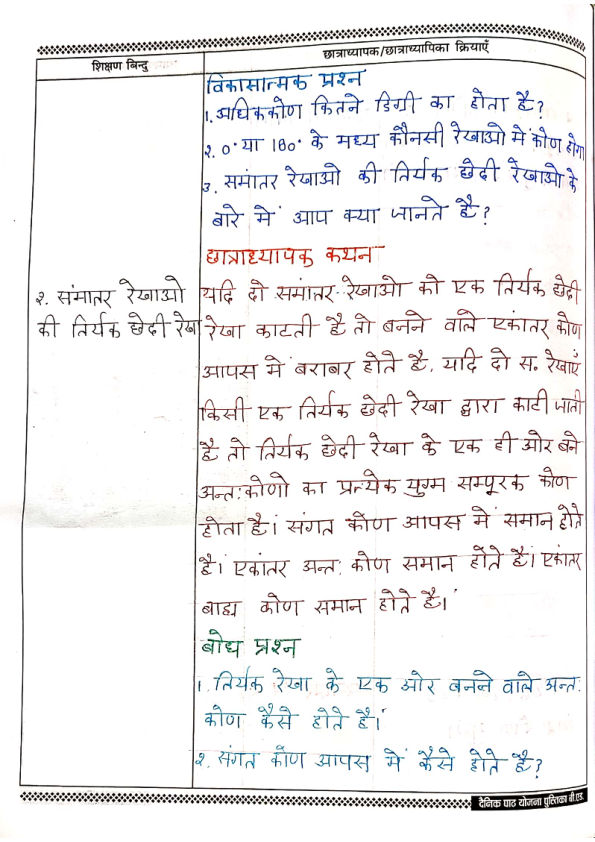 छात्राध्यापक/छात्राध्यापिका क्रियाएँ
शिक्षण बिन्दु
विकासात्मक प्रश्न
1. अधिककोण कितने डिग्री का होता है?
2. 0° या 180° के मध्य कौनसी रेखाओ में कोण होगा
3. समांतर रेखाओ की तिर्यक छेदी रेखाओ के
बारे में आप क्या जानते है?
छात्राध्यापक कथन
२. संमातर रेखाओ
की तिर्यक छेदी रेखा
यदि दो समांतर रेखाओ को एक तिर्यक छेदी
रेखा काटती है तो बनने वाले एकांतर कोण
आपस में बराबर होते है. यदि दो स. रेखाएँ
किसी एक तिर्यक छेदी रेखा द्वारा काटी जाती
है तो तिर्यक छेदी रेखा के एक ही ओर बने
अन्त: कोणो का प्रत्येक युग्म सम्पूरक कोण
होता है। संगत कोण आपस में समान होते
है। एकांतर अन्त: कोण समान होते है। एकांतर
बाह्य कोण समान होते है।
बोध प्रश्न
1. तिर्यक रेखा के एक ओर बनने वाले अन्त:
कोण कैसे होते है।
२. संगत कोण आपस में कैसे होते है?
दैनिक पाठ योजना पुस्तिका बी.एड.